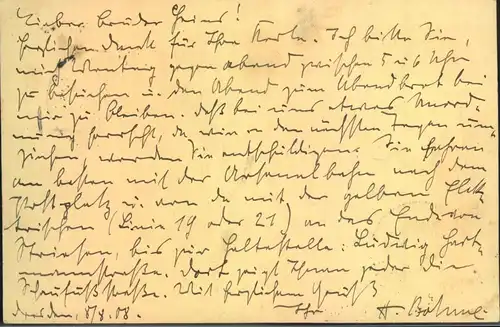 Lieber Bruder Heins!
herzlichen Dank für Ihre Karte. Ich bitte Sie,
mich Montag gegen abend zwischen 5 u 6 Uhr
zu besuchen u. den Abend zum Abendbrot bei
mir zu bleiben. daß bei uns etwas Unord-
nung herrscht, da wir in den nächsten Tagen um-
ziehen werden Sie entschuldigen. Sie fahren
am besten mit der Bahn nach dem
Postplatz u. von da mit der gelben Elek-
trischen (Linie 19 oder 21) an das Ende von
Striesen, bis zur Haltestelle: Ludwig Hart-
mannstraße. dort zeigt Ihnen jeder die
Schaufußstraße. Mit herzlichem Gruß
Dresden, 8/8. 08. Ihr H. Böhme.